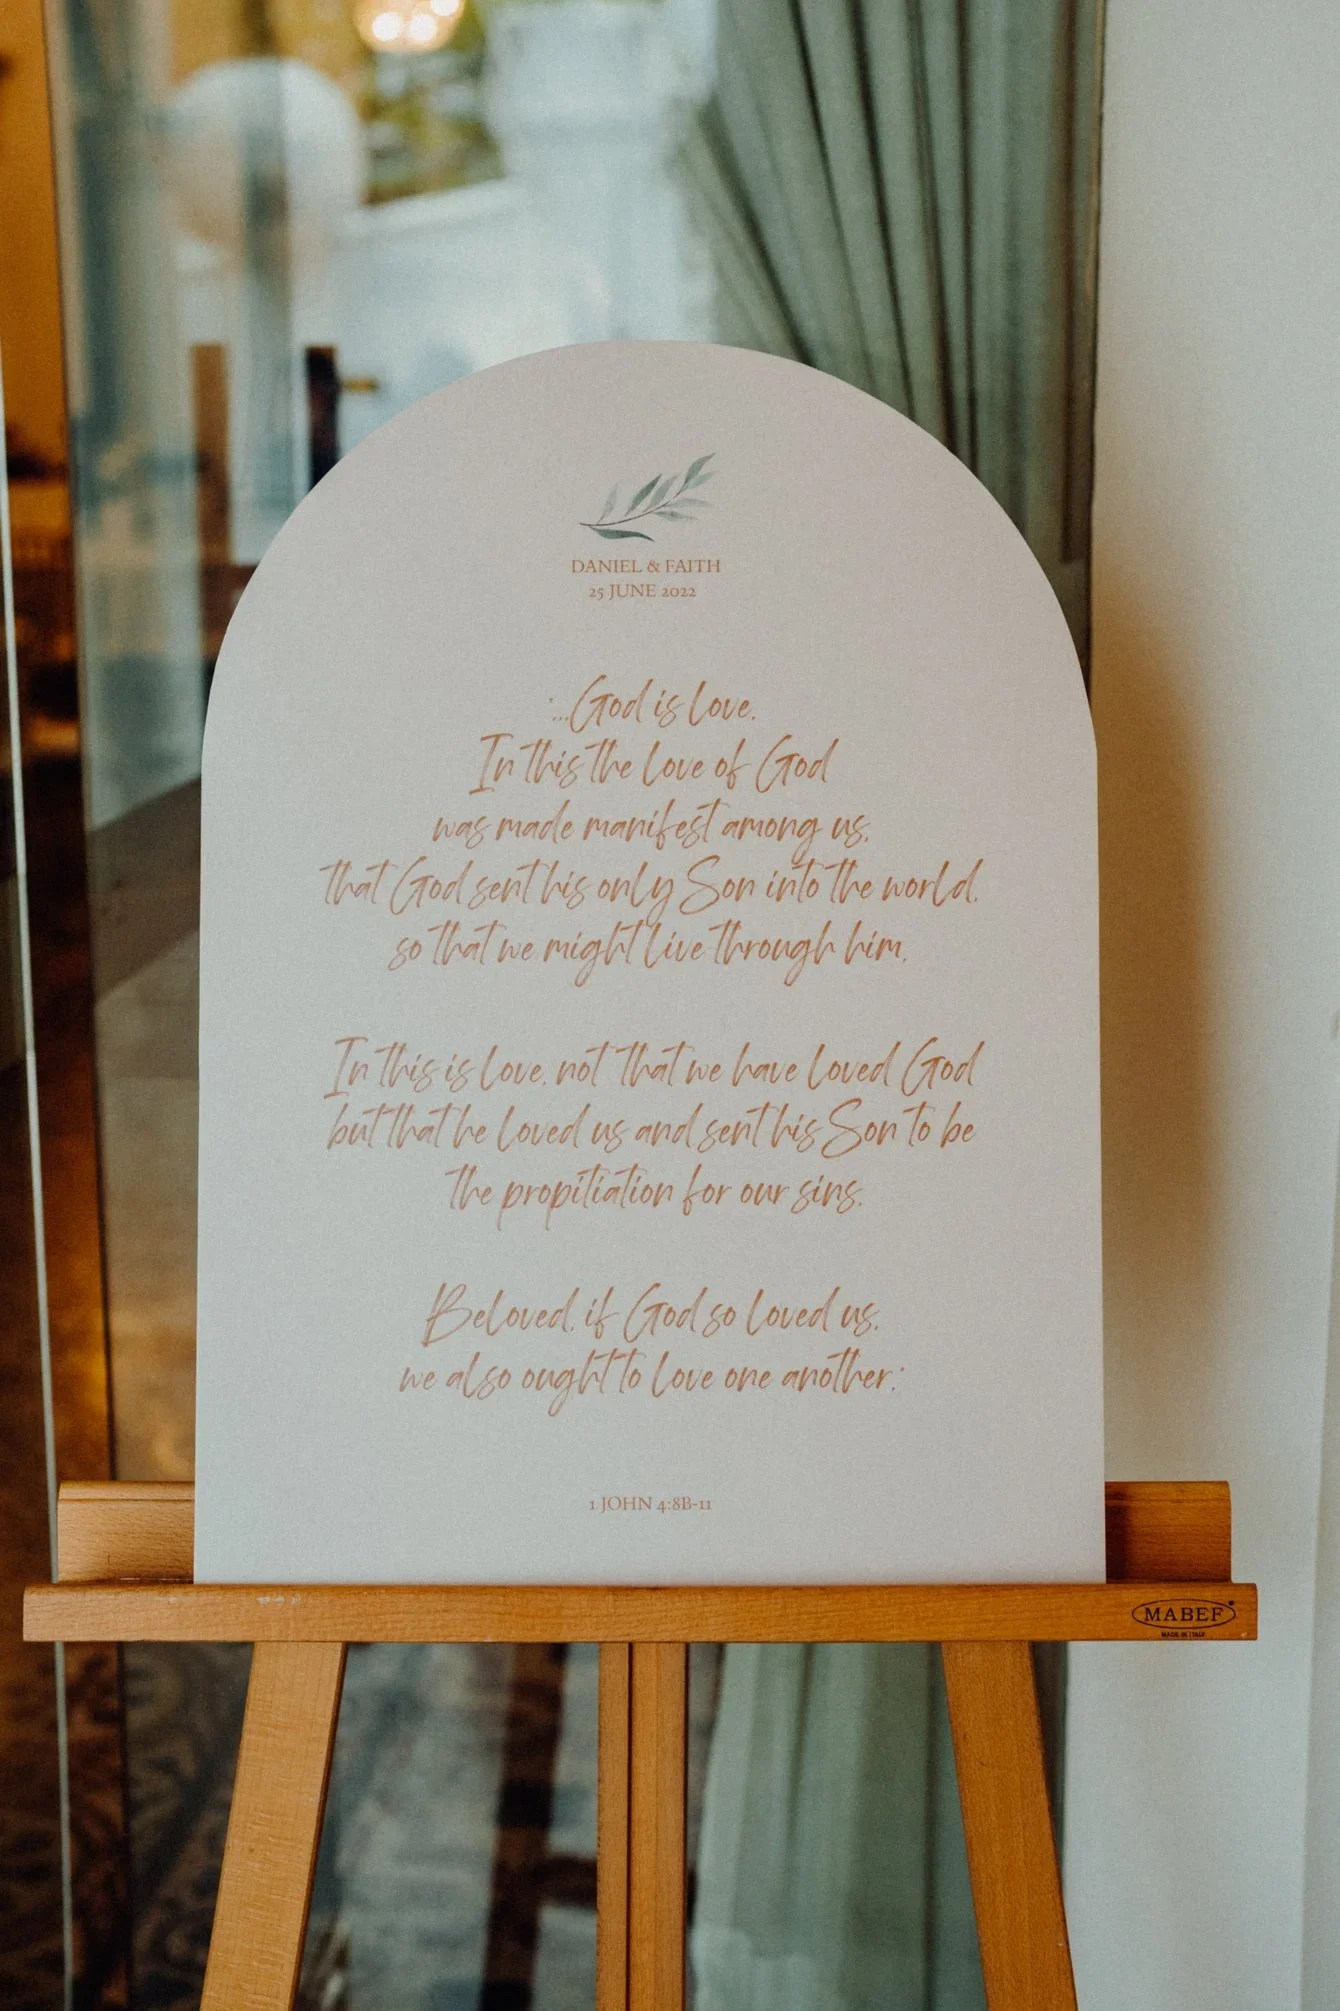 DANIEL & FAITH
25 JUNE 2022
'...God is love.
In this the love of God
was made manifest among us,
that God sent his only Son into the world,
so that we might live through him.
In this is love, not that we have loved God
but that he loved us and sent his Son to be
the propitiation for our sins.
Beloved, if God so loved us,
we also ought to love one another.'
1 JOHN 4:8B-11
MABEF
MADE IN ITALY